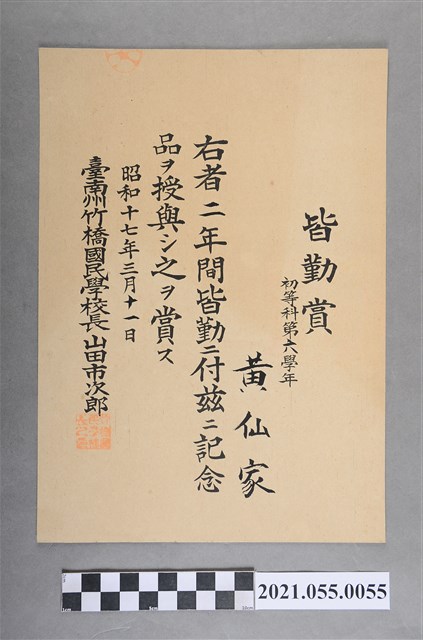 皆勤賞
初等科第六學年
黃仙家
右者二年間皆勤ニ付茲ニ記念
品ヲ授與シ之ヲ賞ス
昭和十七年三月十一日
臺南州竹橋國民學校長 山田市次郎
1cm 5cm 10cm
2021.055.0055